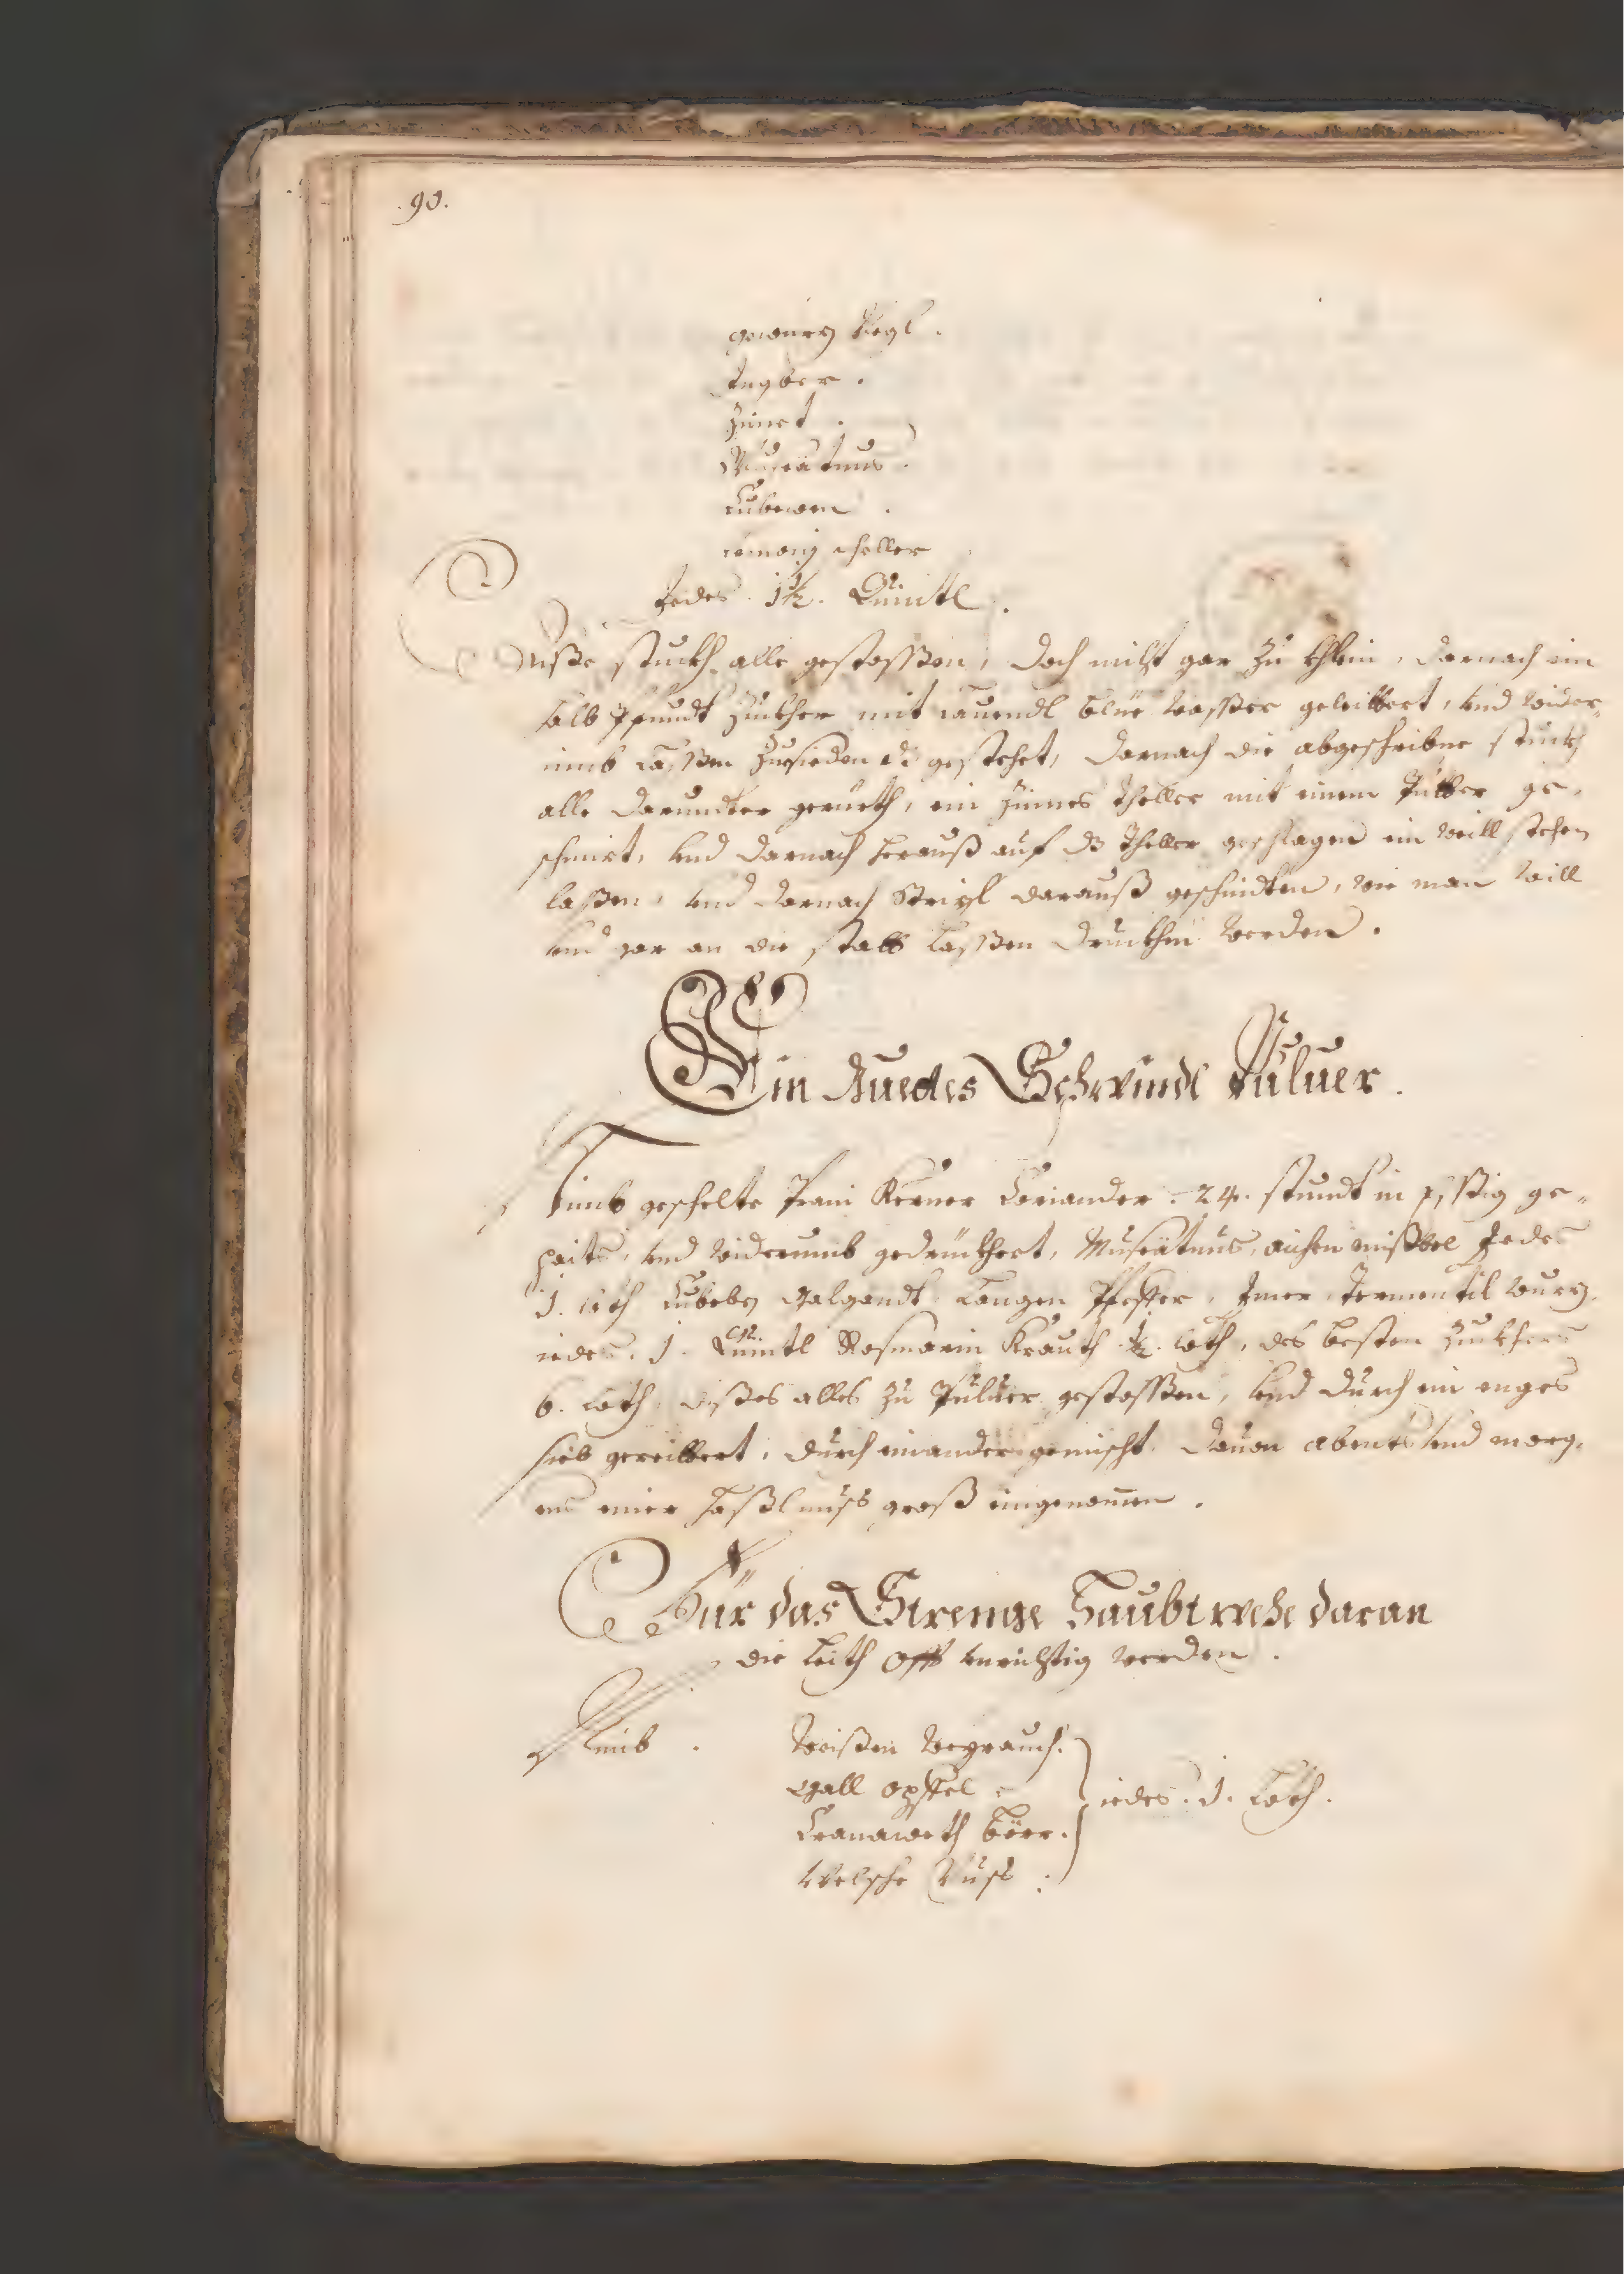 .90.
gewürz Negl.
Ingber.
Zimet.
Muscatnus.
Cubewen.
iedes 1½. Quintl.
Diße stuckh alle gestossßen, doch nicht gar zu khlein, darnach ein
halb Pfundt Zuckher mit lauendl blüe wasßer geleittert, vnd wider„
umb lassßen zusieden dz gestehet, darnach die abgeschribne stuckh
alle darundter gerüerth, ein Zines Theller mit einem Putter ge„
schmirt, vnd darnach herauß auf dz Theller geschlagen ein weill stehen
laßen, vnd darnach Strizl darauß geschnidten, wie man will
vnd gar an die statt lassßen druckhen werden.
Ein Guedes Schwindl Puluer.
Nimb geschelte Kerner Coriander. 24. stundt in esßig ge„
paitzt, vnd widerumb gedrückhert, Muscatnus, aichen mißtl Jedes
1. loth Cubeben Galgandt Langen Pfeffer, Imer, Termentil wurz,
iedes. 1. Quintl Rosmarin Krauth ½. loth, des besten Zuckhers
6. loth, dißes alles zu Puluer gestossßen, vnd durch ein enges
sieb gereittert, durch einander gemischt. Dauon abents vnd morg„
ens einer haßlnuß groß eingenomen.
Für das Strenge Haubtwehe daran
die leith offt vnrichtig werden.
Nimb. Weißen Weyrauch.
Gall öpffel
Cranaweth böer.
Welsche Nuss.
iedes. 1. Loth.